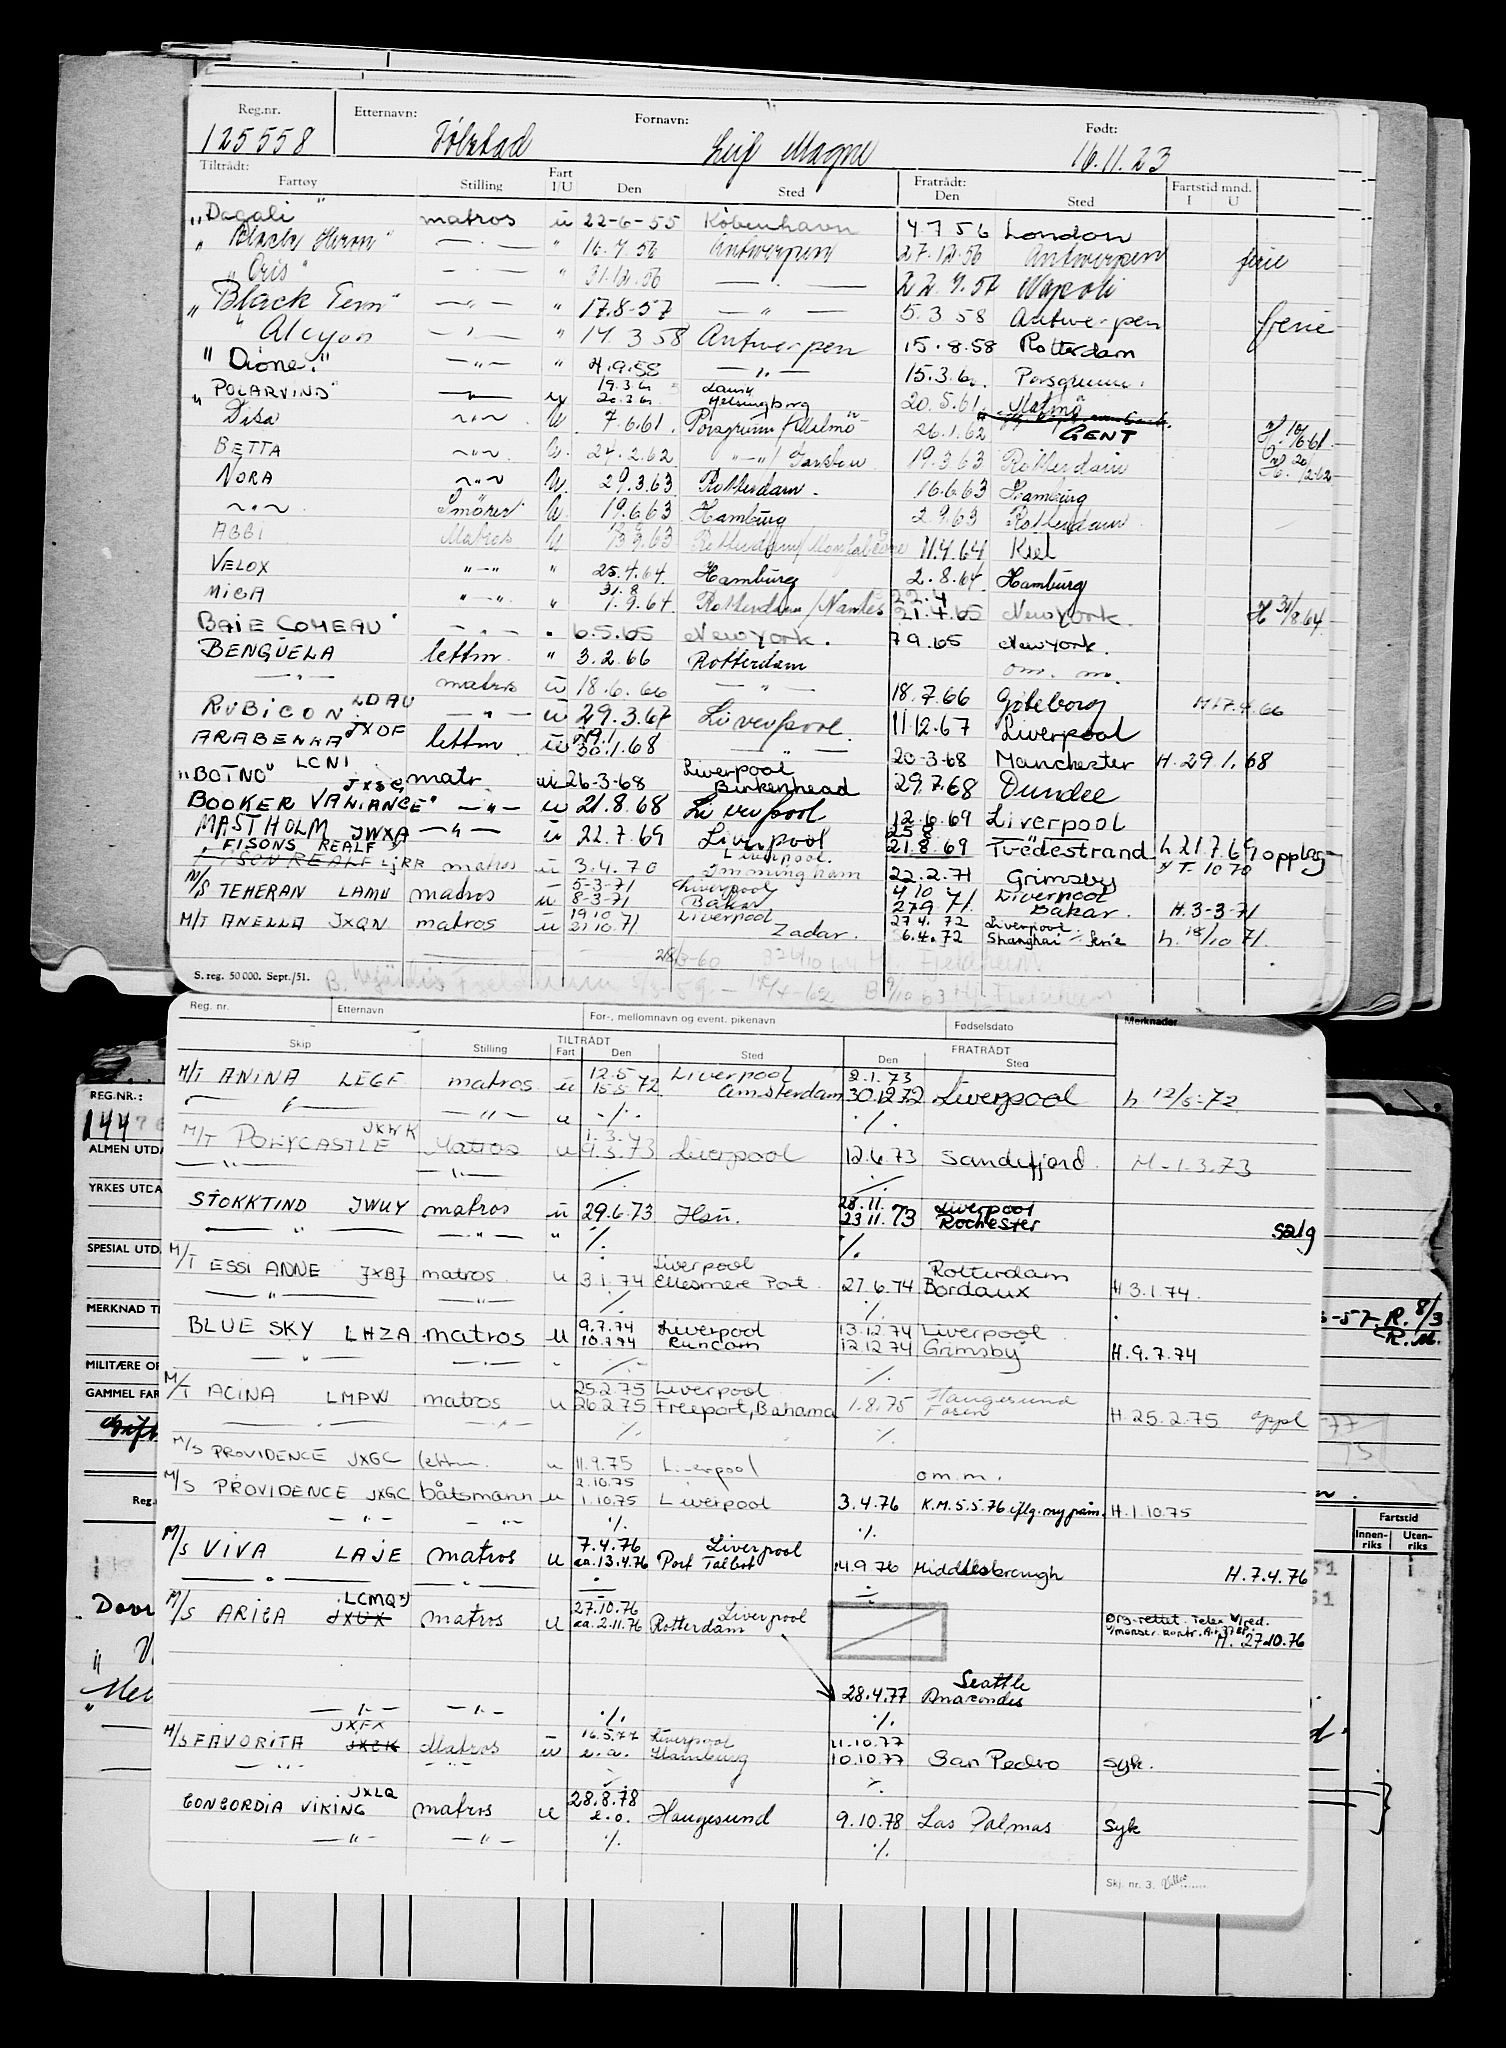 Reg.nr. Etternavn: Fornavn: Født:
125558 Tølstad Leif Magne 16.11.23
Tiltrådt: Fratrådt: Fartstid mnd.
Fartøy Stilling Fart I/U Den Sted Den Sted I U
"Dagali" matros u 22-6-55 København 4 7 56 London
"Black Heron" — " — " 16.7.56 Antwerpen 27.12.56 Antwerpen ferie
"Cris" — " — " 31.12.56 — " — 22.7.57 Napoli
"Black Tern" — " — " 17.8-57 — " — 5.3 58 Antwerpen ferie
" Alcyon — " — " 14.3 58 Antwerpen 15.8.58 Rotterdam
"Dione" — " — " 4.9.58 — " — 15.3.60. Porsgrunn.
"POLARVIND" — " — 19.3.60 20.3.60 Helsingborg 20.5.61 Malmö
Disa — " — U. 7.6.61. Porsgrunn/Malmö 26.1.62 GENT
BETTA — " — U. 24.2.62 — " — 19.3.63 Rotterdam
NORA — " — U. 29.3.63 Rotterdam. 16.6.63 Hamburg
— " — Smörer U. 19.6.63 Hamburg 2.9.63 Rotterdam
ABBI Matros U 13.9.63 Rotterdam/ 11.4.64 Kiel
VELOX " — " " 25.4.64 Hamburg 2.8.64. Hamburg
MICA " — " " 31.8 1.9.64 Rotterdam/Nantes 22.4 21.4.65 New York. H 31/8.64.
BAIE COMEAU" — " — " 6.5.65 New York. 7 9.65 New York.
BENGUELA lettm. " 3.2.66 Rotterdam om. m.
— " — matros u 18.6.66 — " — 18.7.66 Göteborg
RUBICON LDAU — " — u 29.3.67 Liverpool. 11 12.67 Liverpool
ARABELLA JXOF lettm. u 29.1 30.1.68 — " — 20-3-68 Manchester H. 29 1. 68
"BOTNO" LCNI matr. u 26-3-68 Liverpool Birkenhead 29.7.68 Dundee
BOOKER VANGUARD" JXSG — " — u 21.8.68 Liverpool 12.6.69 Liverpool
MASTHOLM JWXA — " — u 22.7.69 Liverpool 25.8 21.8.69 Tvedestrand h 21.7.69 opplag
FISONS REALF LJRR matros u 3.4.70 Liverpool. Immingham 22.2.71 Grimsby
M/S TEHERAN LAMU matros u 5-3-71 8-3-71 Liverpool Bakar 4 10 27 9 71. Liverpool Bakar. H. 3-3-71
M/T ANELLA JXQN matros u 19 10 21 10.71 Liverpool Zadar. 27 4. 72 6.4.72 Liverpool. Shanghai ferie h. 18/10 71.
S. reg. 50 000. Sept./51.
Reg. nr. Etternavn For-, mellomnavn og event. pikenavn Fødselsdato Merknader
TILTRÅDT FRATRÅDT
Skip Stilling Fart Den Sted Den Sted
M/T ANINA LEGF matros u 12.5 15.5.72 Liverpool Amsterdam 2.1.73 30.12.72 Liverpool h 12/5-72
— " — — " — u ./. ./.
M/T POLYCASTLE JXWK Matros u 1.3.73 9.3.73 Liverpool 12.6.73 Sandefjord. H - 1.3.73
— " — — " — ./. ./.
STOKKTIND JWUY matros u 29.6.73 Hsu. 28.11. 23.11.73 Liverpool Rochester salg
— " — — " — " ./. ./.
M/T ESSI ANNE JXBJ matros u 3.1.74 Liverpool Ellesmere Port. 27.6.74 Rotterdam Bordaux H 3.1.74.
— " — — " — ./. ./.
BLUE SKY LHZA matros u 9.7.74 10.7.74 Liverpool Runcorn 13.12.74 12.12.74 Liverpool Grimsby H.9.7.74
— " — — " — ./. ./.
M/T ACINA LMPW matros u 25.2.75 26.2.75 Liverpool Freeport, Bahama 1.8.75 Haugesund H.25.2.75 oppl
— " — — " — ./. ./.
M/S PROVIDENCE JXGC lettm. u 11.9.75 Liverpool om.m.
M/S PROVIDENCE JXGC båtsmann u 2.10.75 1.10.75 Liverpool 3.4.76 K.M.5.5.76 iflg. ny påm. H.1.10.75
— " — — " — ./. ./.
M/S VIVA LAJE matros u 7.4.76 ca.13.4.76 Liverpool Port Talbot 14.9.76 Middlesbrough H.7.4.76
— " — — " — ./. ./.
M/S ARICA LCMQ JXUX matros u 27.10.76 ca.2.11.76 Liverpool Rotterdam H. 27.10.76
28.4.77 Seattle Anacondes
— " — — " — ./. ./.
M/S FAVORITA JXFX matros u 16.5.77 Liverpool Hamburg 11.10.77 10.10.77 San Pedro syk.
— " — — " — ./. ./.
CONCORDIA VIKING JXLQ matros u 28.8.78 Haugesund 9.10.78 Las Palmas syk
— " — — " — ./. ./.
Skj. nr. 3.
REG.NR.:
144
ALMEN UTDA
YRKES UTDA
SPESIAL UTD
MERKNAD T
MILITÆRE OP
GAMMEL FAR
Reg.
-57 R. 8/3
R.M.
Fartstid
Innen-riks Uten-riks